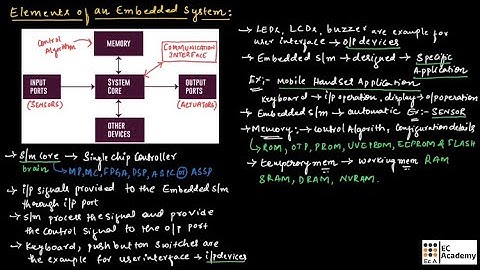 Elements of an Embedded System:
Control
Algorithm
MEMORY
COMMUNICATION
INTERFACE
INPUT
PORTS
(SENSORS)
SYSTEM
CORE
OUTPUT
PORTS
(ACTUATORS)
OTHER
DEVICES
→ S/m Core → Single chip Controller
brain → MP, MC, FPGA, DSP, ASIC (or) ASSP
→ i/p signals provided to the Embedded s/m
through i/p port
→ S/m process the signal and provide
the control signal to the o/p port
→ Keyboard, push button switches are
the example for user interface → i/p devices
→ LEDs, LCDs, buzzer are example for
user interface → o/p devices
→ Embedded s/m → designed → Specific
Application
Ex:- Mobile Handset Application
Keyboard → i/p operation, display → o/p operation
→ Embedded s/m → automatic Ex:- SENSOR
→ Memory: → Control Algorith, Configuration details
→ ROM, OTP, PROM, UVEPROM, EEPROM & FLASH
→ temporary mem → working mem RAM
SRAM, DRAM, NVRAM.
EC
Academy
EcA